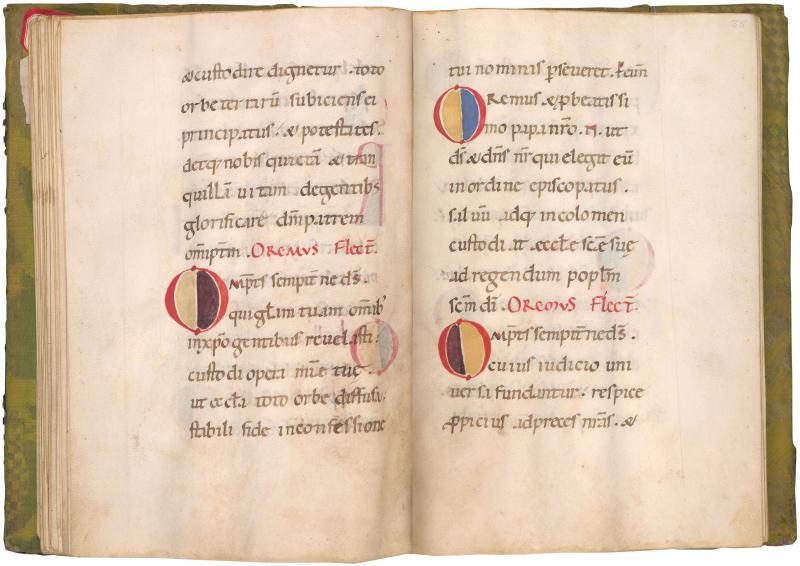 & custodire dignetur . toto
orbe terrarū subiciens ei
principatus . & potestates .
detq; nobis quietā & tran
quillā uitam degentibs
glorificare dm̄ patrem
omīptm . OREMUS Flect̄ .
Omp̄ts sempit̄ne ds̄ .
qui gl̄am tuam omīb'
inxp̄o gentibus reuelasti :
custodi opera mīe tuę
ut eccl̄a toto orbe diffusa .
stabili fide in confessione
35
tui nominis p̄seueret . P eun̄
Oremus & p beatissi
mo papa nr̄o . N . ut
ds̄ & dn̄s nr̄ qui elegit eū
in ordine episcopatus .
saluū adq; incolomen
custodiat eccl̄e sc̄e suę
ad regendum popl̄m
sc̄m dī . OREMUS Flect̄ .
Omp̄ts sempit̄ne ds̄ .
cuius iudicio uni
uersa fundantur . respice
ꝓpicius ad preces nr̄as . &